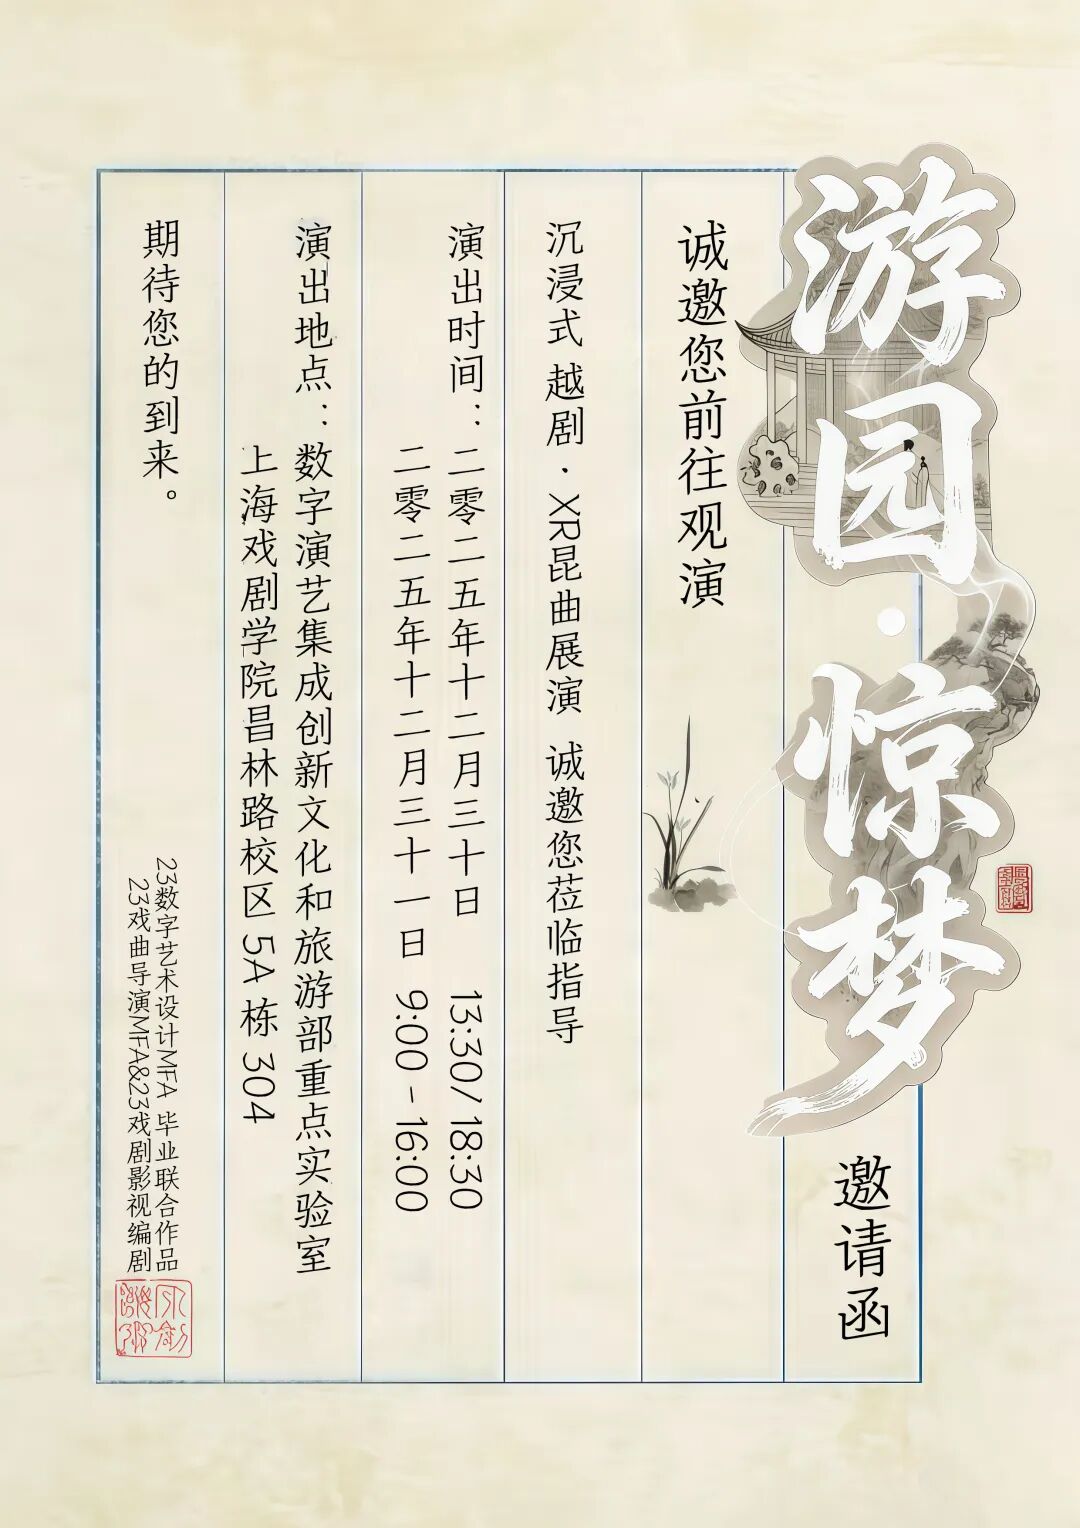 游园·惊梦
邀请函
诚邀您前往观演
沉浸式 越剧·XR昆曲展演 诚邀您莅临指导
演出时间：二零二五年十二月三十日 13:30/18:30
二零二五年十二月三十一日 9:00-16:00
演出地点：数字演艺集成创新文化和旅游部重点实验室
上海戏剧学院昌林路校区 5A 栋 304
期待您的到来。
23数字艺术设计MFA 毕业联合作品
23戏曲导演MFA&23戏剧影视编剧